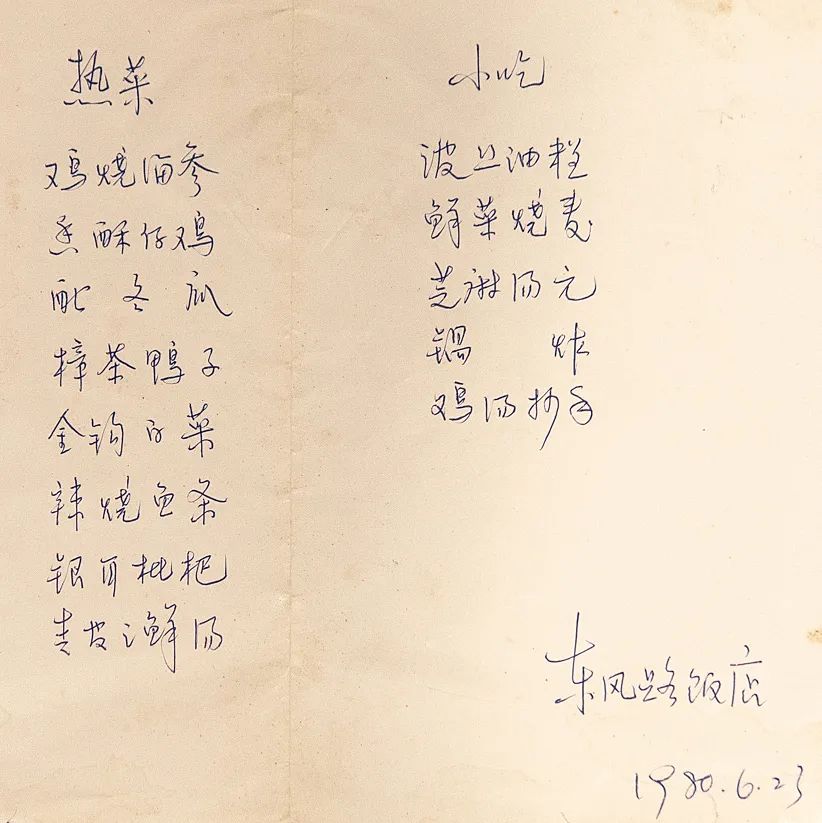 热菜
鸡烧海参
香酥仔鸡
酿冬瓜
樟茶鸭子
金钩白菜
辣烧鱼条
银耳枇杷
青皮海鲜汤
小吃
波丝油糕
鲜菜烧麦
芝麻汤元
锅炸
鸡汤抄手
东风路饭店
1980.6.23